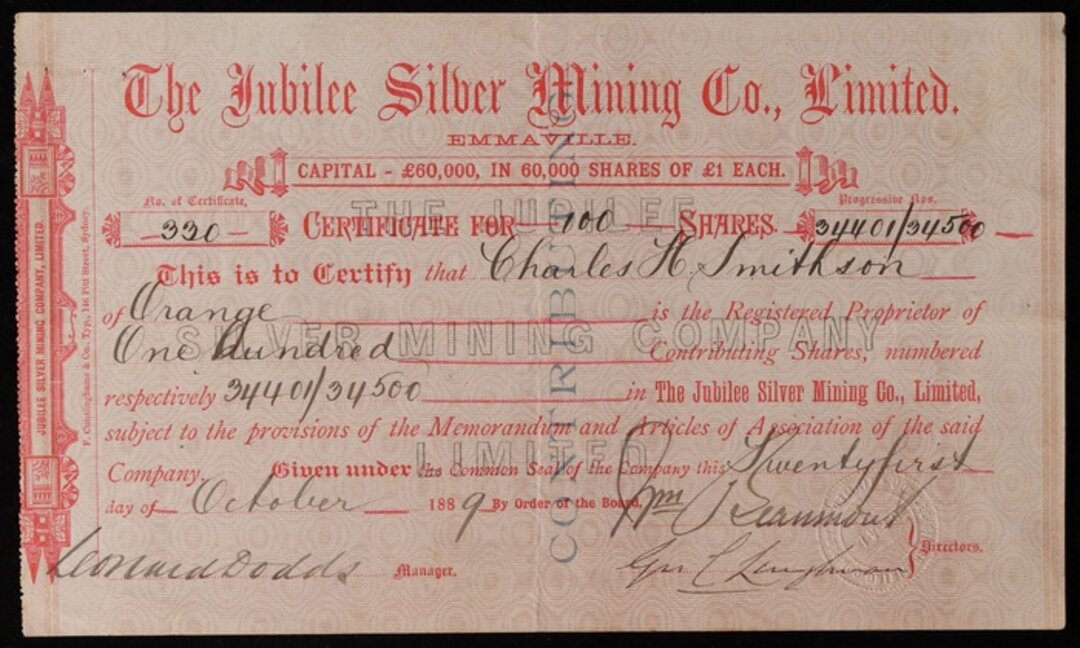 The Jubilee Silver Mining Co., Limited.
EMMAVILLE.
CAPITAL - £60,000, IN 60,000 SHARES OF £1 EACH.
No. of Certificate,
Progressive Nos.
330 CERTIFICATE FOR 100 SHARES. 34401/34500
This is to Certify that Charles H. Smithson
of Orange is the Registered Proprietor of
One Hundred Contributing Shares, numbered
respectively 34401/34500 in The Jubilee Silver Mining Co., Limited,
subject to the provisions of the Memorandum and Articles of Association of the said
Company. Given under the Common Seal of the Company this Twentyfirst
day of October 1889 By Order of the Board,
Wm Beaumont
Leonard Dodds Manager.
Directors.
THE JUBILEE
SILVER MINING COMPANY
LIMITED
CONTRIBUTING
JUBILEE SILVER MINING COMPANY, LIMITED
F. Cunninghame & Co. Typ., 146 Pitt Street, Sydney.